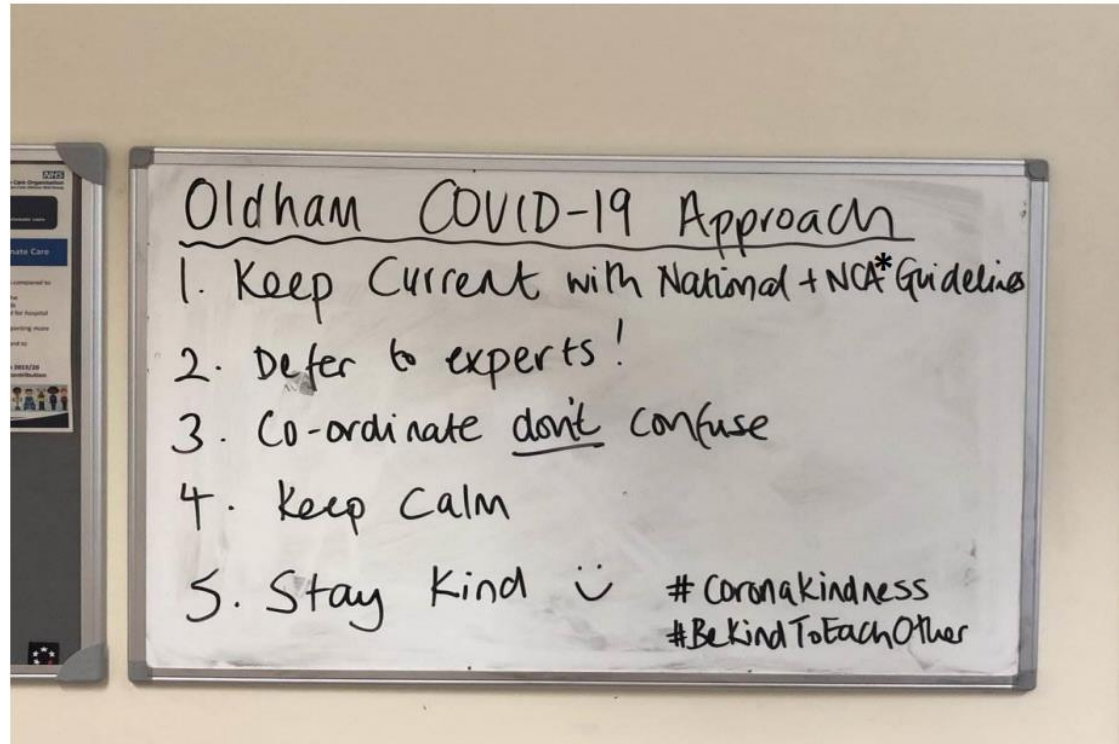 NHS
Care Organisation
mate Care
compared to
for hospital
Oldham COVID-19 Approach
1. Keep Current with National + NCA* Guidelines
2. Defer to experts!
3. Co-ordinate don't confuse
4. Keep Calm
5. Stay Kind ü
#CoronaKindness
#BeKindToEachOther